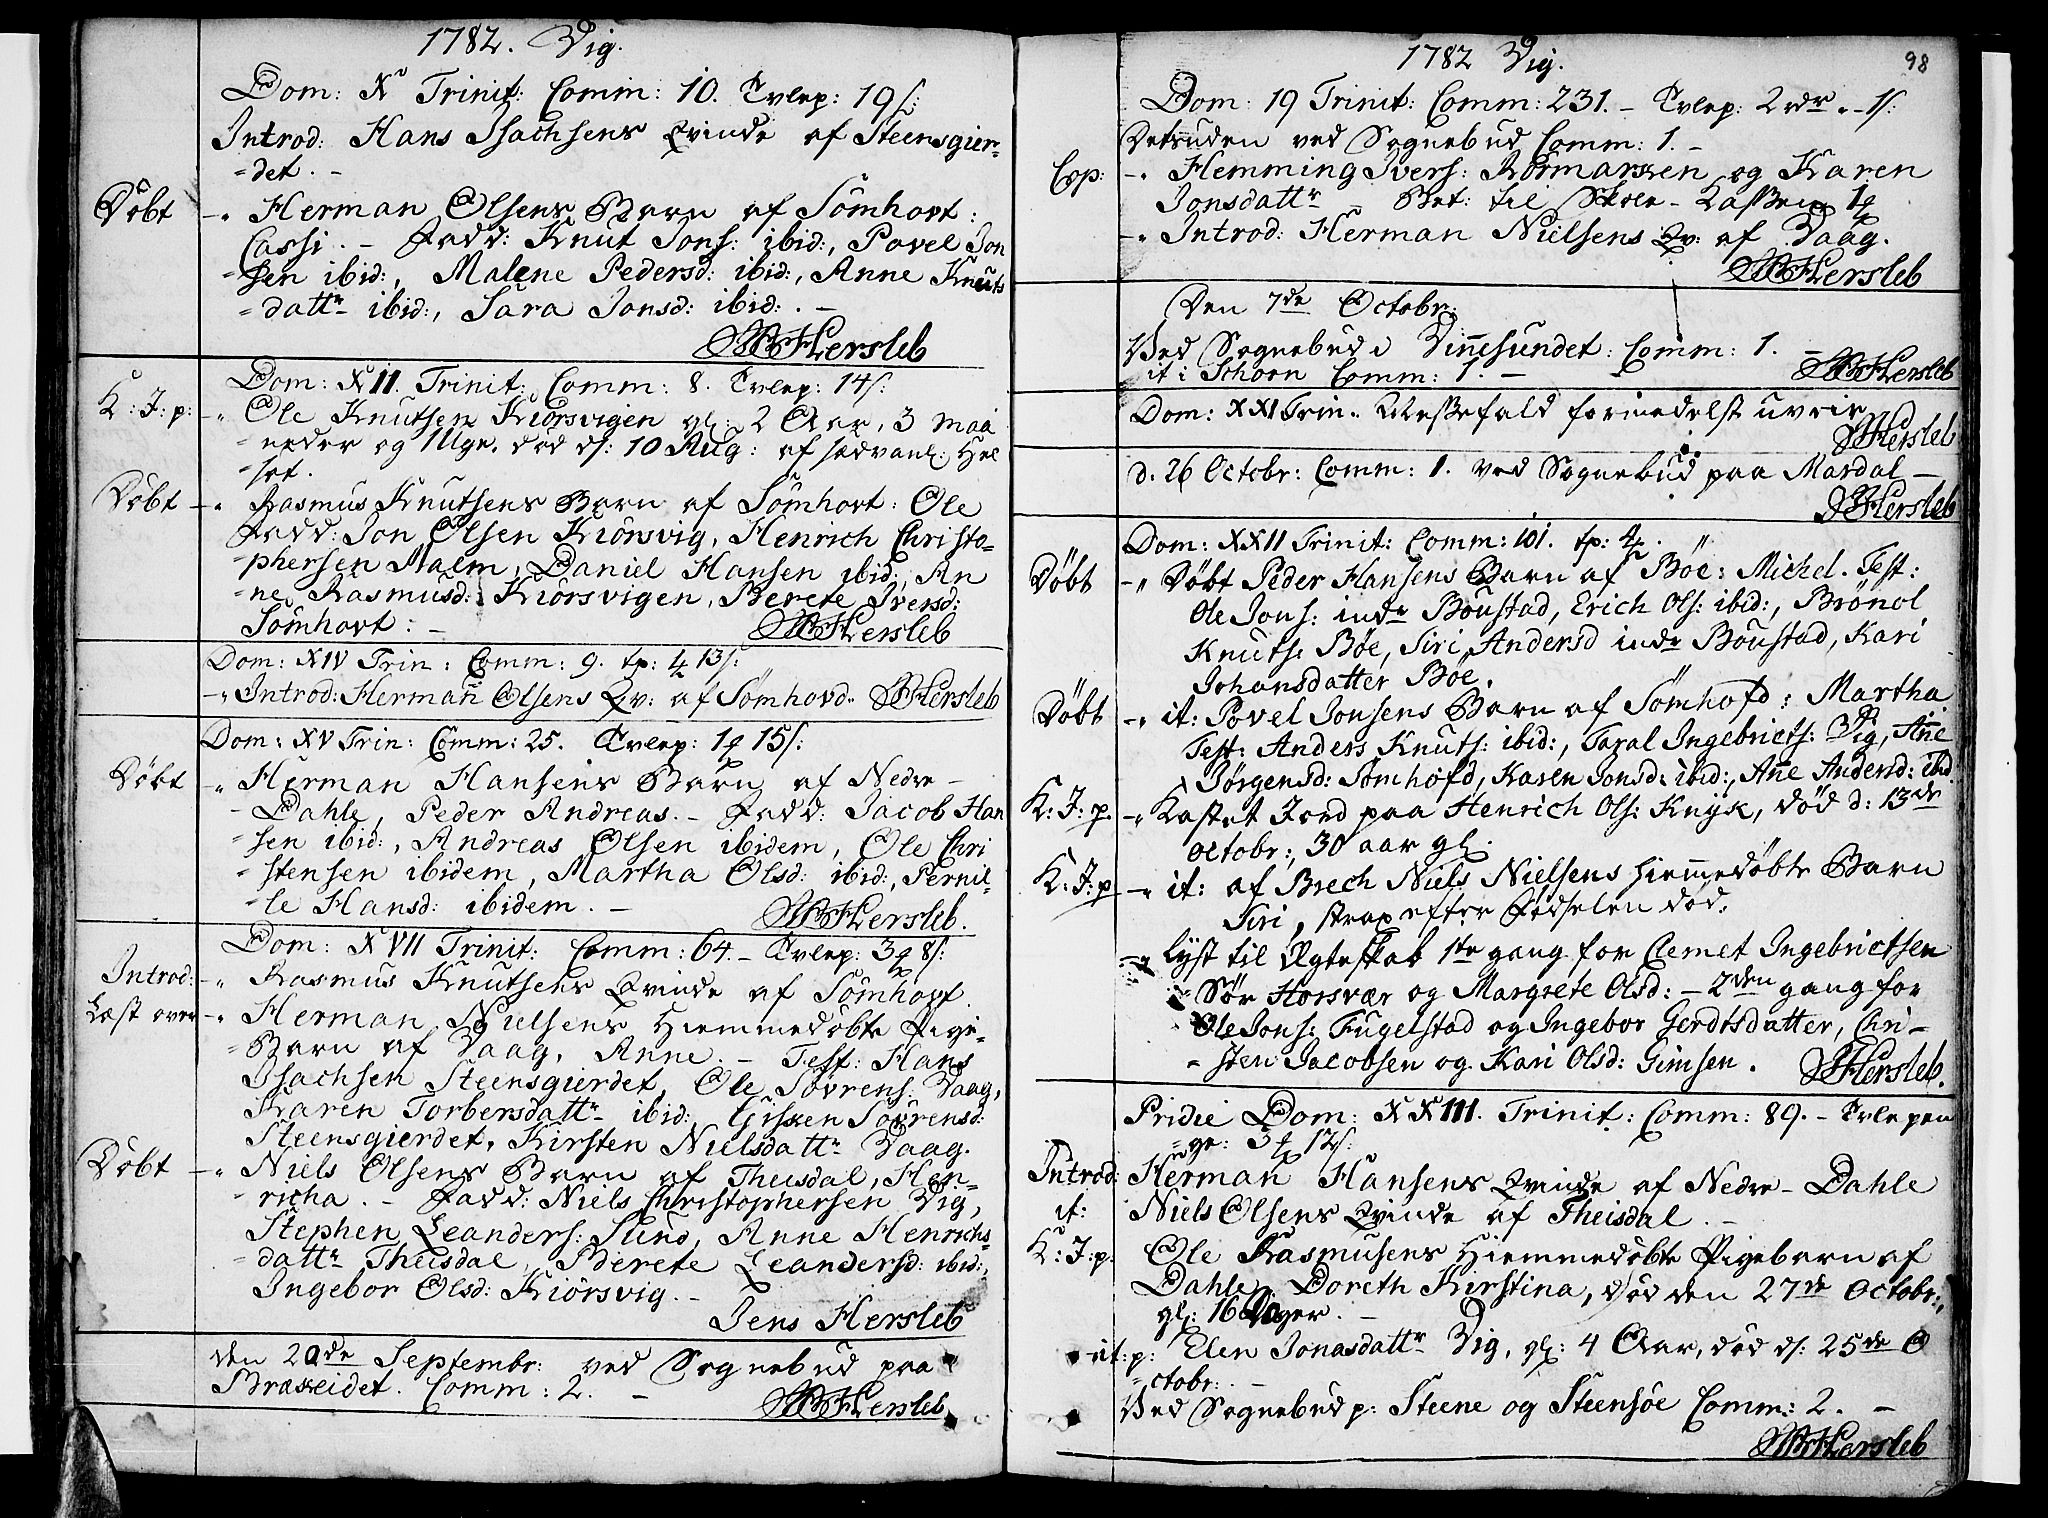 1782. Vig.
Dom: X Trinit: Comm: 10. Tvlep: 19 s:
Introd: Hans Isachsens Qvinde af Steensgier-
=det. -
Döbt -" Herman Olsens Barn af Sömhovt:
Cassi. - Fadd: Knut Jons: ibid:, Povel Jon
=sen ibid:, Malene Pedersd: ibid:, Anne Knuts
=dattr ibid:, Sara Jonsd: ibid: . -
Hersleb
Dom: XII. Trinit: Comm: 8. Tvlep: 14 s:
K: J: p: -" Ole Knutsen Kiörsvigen gl: 2 Aar, 3 maa
=neder og 1 Uge. död ds: 10 Aug: af sædvanl: Hel
=sot.
Döbt -" Rasmus Knutsens Barn af Sömhovt: Ole
Fadd: Jon Olsen Kiörsvig, Henrich Christo=
=phersen Malm, Daniel Hansen ibid:, An
=ne Rasmusd: Kiörsvigen, Berete Iversd:
Sömhovt: -
Hersleb
Dom: XIV Trin: Comm: 9. tp: 13 s:
-" Introd: Herman Olsens Qv: af Sömhovd. Hersleb
Dom: XV Trin: Comm: 25. Tvlep: 1 15 s:
Döbt -" Herman Hansens Barn af Nedre -
- Dahle, Peder Andreas. - Fadd: Jacob Han
=sen ibid:, Andreas Olsen ibidem, Ole Chri
=stensen ibidem, Martha Olsd: ibid:, Pernil=
=le Hansd: ibidem. -
Hersleb.
Dom: XVII Trinit: Comm: 64. - Tvlep: 3 8 s:
Introd: -" Rasmus Knutsens Qvinde af Sömhovt.
Læst over -" Herman Nielsens Hiemmedöbte Pige=
=Barn af Vaag, Anne. - Test: Hans
Isachsen Steensgierdet, Ole Sövrens: Vaag,
Karen Torbersdattr ibid: Gisken Sövrensd:
Steensgierdet, Kirsten Nielsdattr Vaag.
Döbt -" Niels Olsens Barn af Theisdal, Hen=
=richa. - Fadd: Niels Christophersen Vig,
Stephen Leanders: Sund, Anne Henrichs=
=dattr Theisdal, Berete Leandersd: ibid:,
Ingebor Olsd: Kiörsvig. -
Jens Hersleb
den 20de Septembr: ved Sognebud paa
Bræseidet. Comm: 2. -
Hersleb
1782 Vig.
98
Dom: 19 Trinit: Comm: 231. - Tvlep: 2 rdr " - 1 s:
Desuden ved Sognebud Comm: 1. -
Cop: -" Hemming Ivers: Rörmarken og Karen
Jonsdattr - Bet: til Skole-Kassen 1
-" Introd: Herman Nielsens Qv: af Vaag.
Hersleb
Den 7de Octobr:
Ved Sognebud i Vinnesundet: Comm: 1. -
it i Schorn Comm: 1. -
Hersleb
Dom: XXI Trin. Messefald formedelst uveir
Hersleb
d. 26 Octobr: Comm: 1. ved Sognebud paa Mardal -
Hersleb
Dom: XXII Trinit: Comm: 101. tp: 4 .
Döbt -" Döbt Peder Hansens Barn af Böe: Michel. Test:
Ole Jons: indr Böustad, Erich Ols: ibid:, Brönol
Knuts: Böe, Siri Andersd indr Böustad, Kari
Johansdatter Böe.
Döbt -" it: Povel Jonsens Barn af Sömhofd: Martha
Test: Anders Knuts: ibid:, Taral Ingebricts: Vig, Ane
Jörgensd: Sömhofd, Karen Jonsd: ibid:, Ane Andersd: ibd
K: J: p. -" Kastet Jord paa Henrich Ols: Knyk, död d: 13de
octobr:, 30 aar gl.
K: J: p -" it: af Brech Niels Nielsens hiemmedöbte Barn
Siri, strax efter Födselen död.
-" lyst til Ægteskab 1ste gang for Clemet Ingebrictsen
Sör Horsvær og Margrete Olsd: - 2den gang for
Ole Jons: Fugelstad og Ingebor Gerdtsdatter, Chri-
=sten Jacobsen og Kari Olsd: Gimsen.
Hersleb.
Pridie Dom: XXIII. Trinit: Comm: 89. - Tvlepen
=ge: 3 12 s:
Introd: Herman Hansens Qvinde af Nedre-Dahle
it: Niels Olsens Qvinde af Theisdal. -
K: J: p: Ole Rasmusens Hiemmedöbte Pigebarn af
Dahle, Doreth Kirstina, död den 27de Octobr:,
gl: 16 Uger. -
it: p: Elen Jonasdattr Vig, gl: 4 Aar, död ds: 25de O
=ctobr: -
Ved Sognebud p: Steene og Steensöe Comm: 2. -
Hersleb